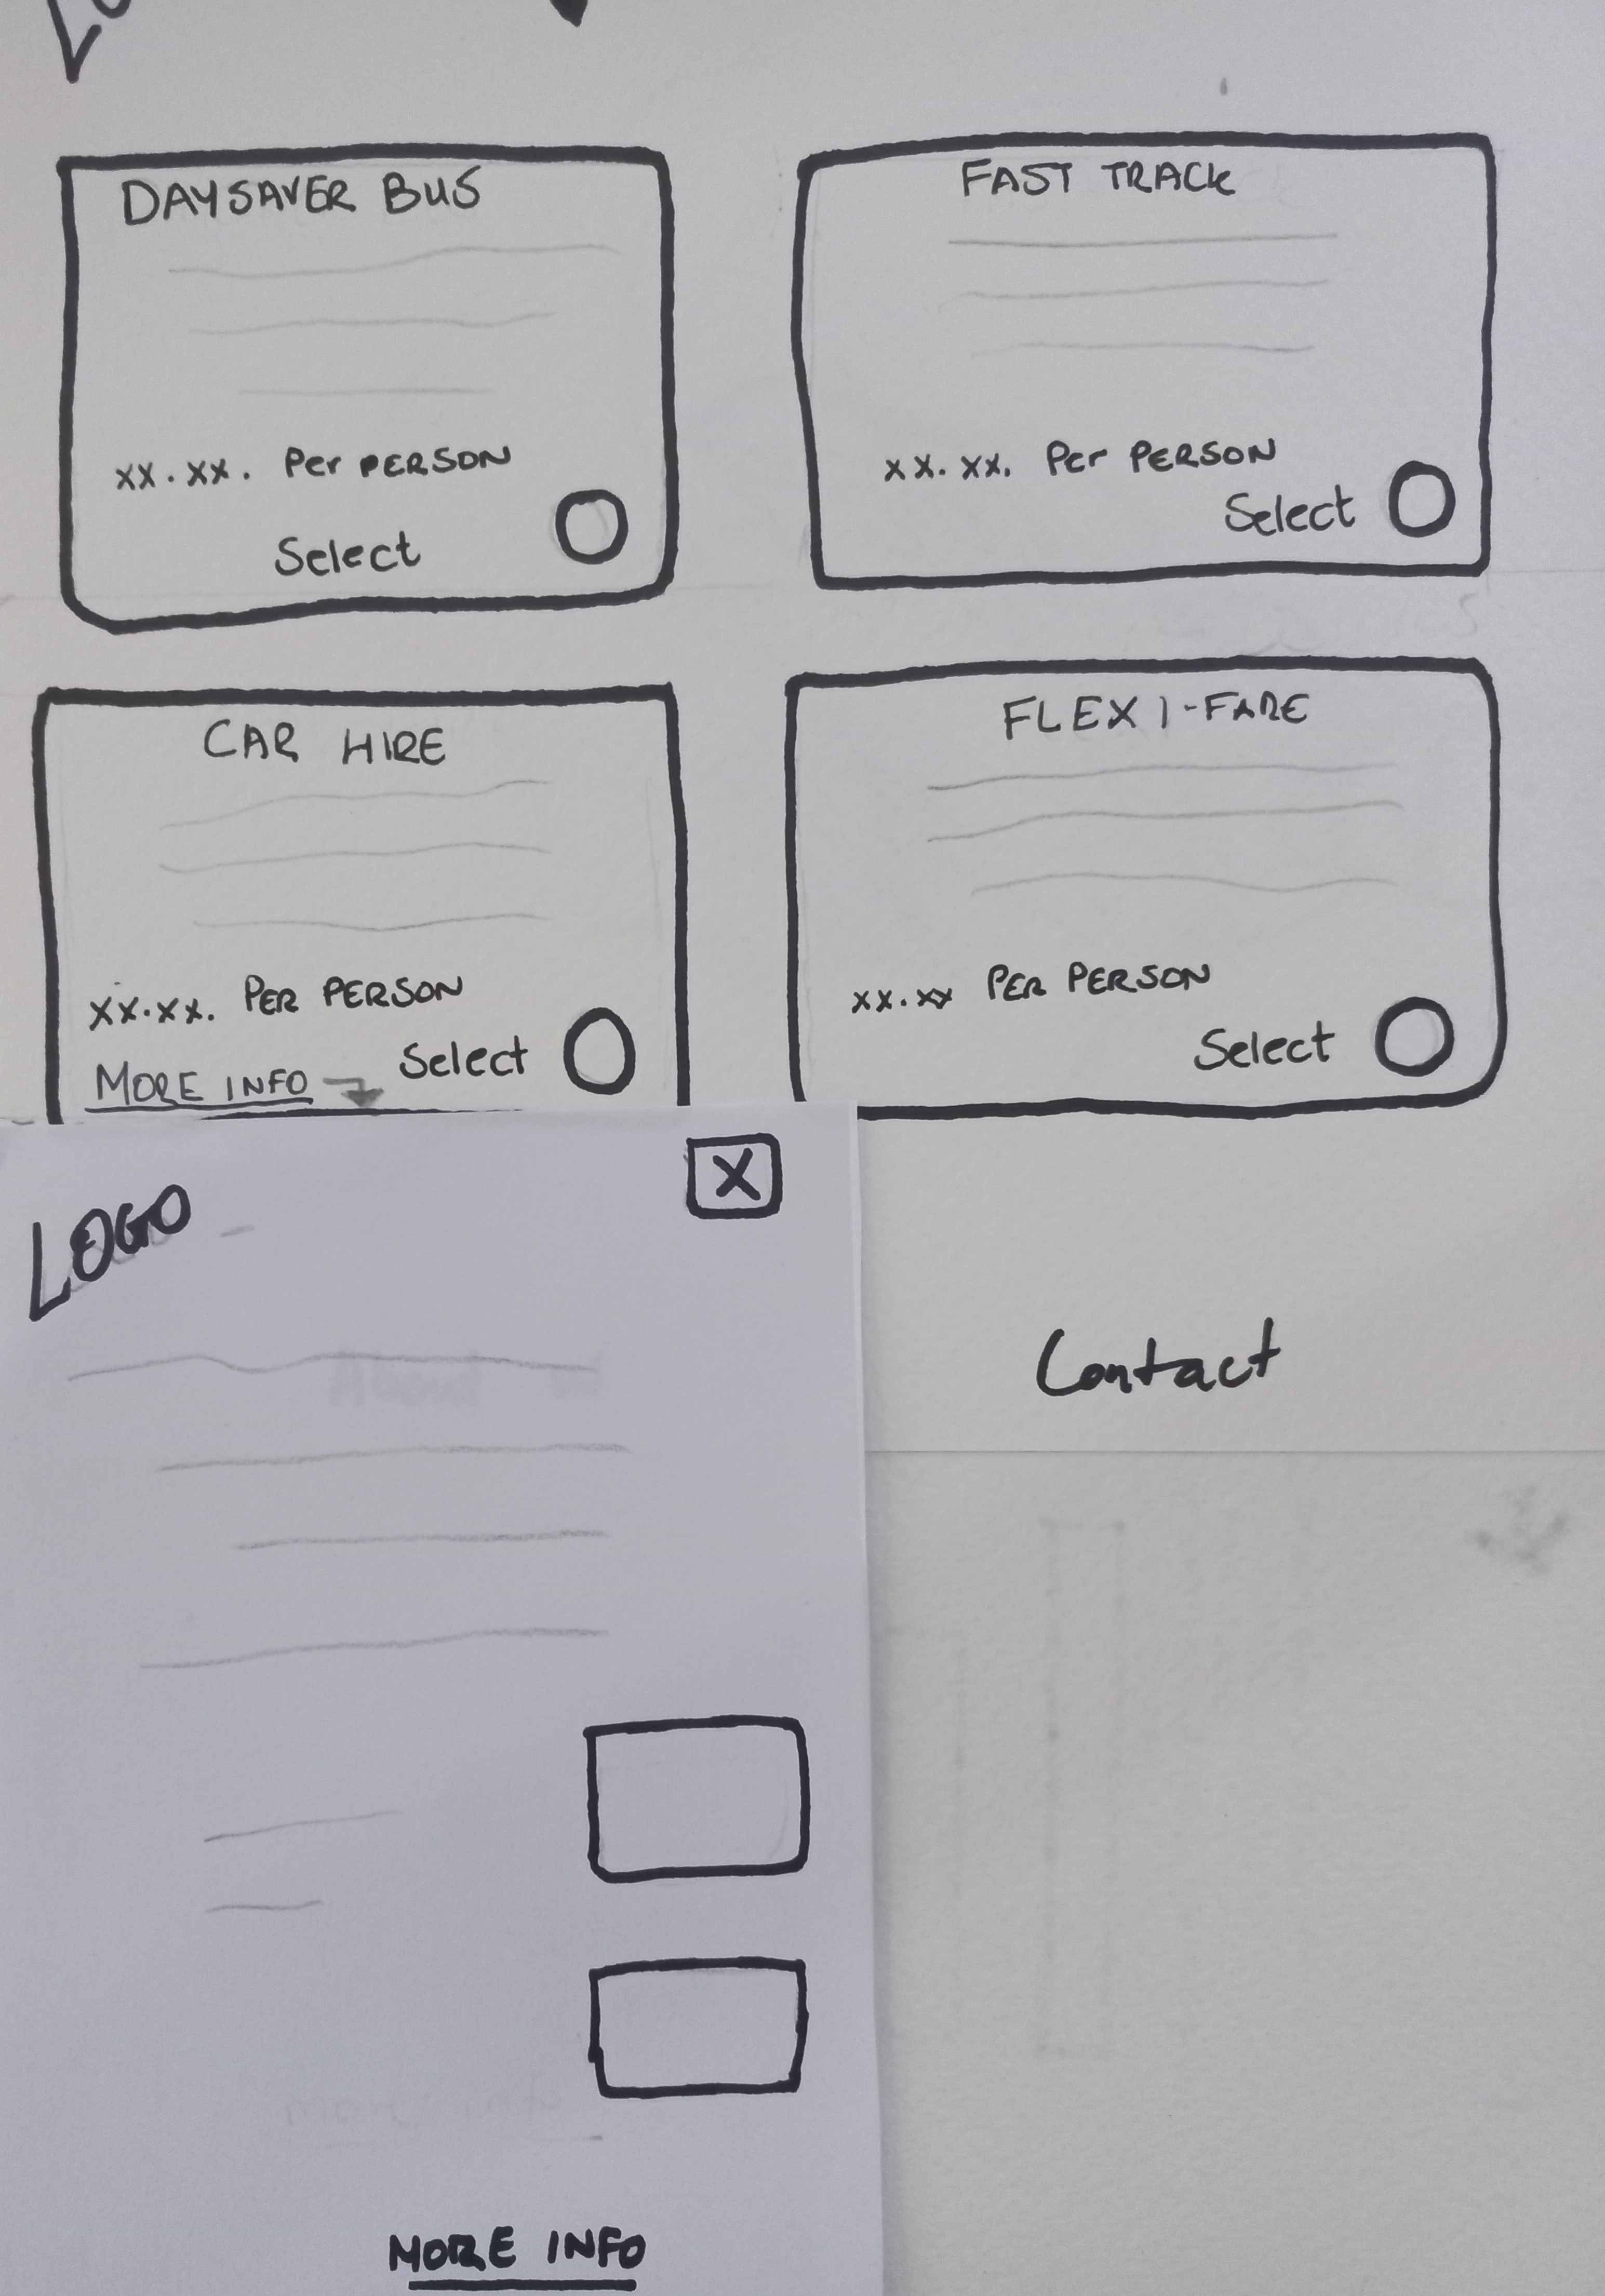 DAYSAVER BUS
xx.xx. Per PERSON
Select
FAST TRACK
xx.xx. Per PERSON
Select
CAR HIRE
xx.xx. PER PERSON
MORE INFO
Select
FLEXI-FARE
xx.xx PER PERSON
Select
X
LOGO
Contact
MORE INFO